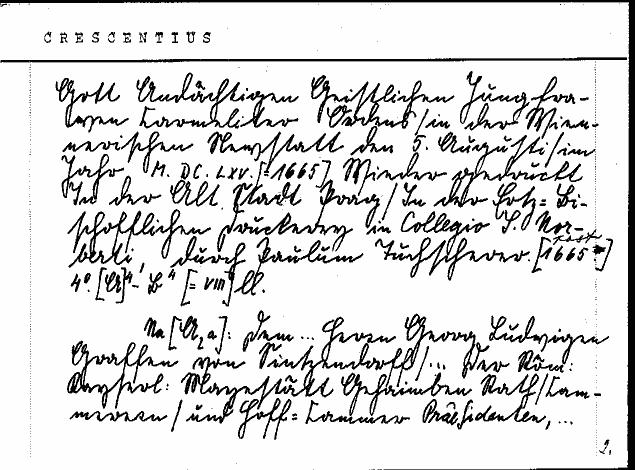 CRESCENTIUS
Gott Andächtigen Geistlichen Jungfra-
wen Carmeliter Ordens/in der Wien-
nerischen Newstatt den 5. Augusti/im
Jahr M. DC. LXV. [=1665] Wieder gedruckt
In der Alt Stadt Prag/In der Ertz=Bi-
schofflichen Druckerey in Collegio S. Nor-
berti, durch Paulum Tuchscherer. [1665 post]
4°. [A]4-B4 [=VIII] ll.
Na [A2a]: Dem ... Herrn Georg Ludwigen
Graffen von Sintzendorff/... Der Röm:
Kayserl: Mayestätt Gehaimben Rath/Cam-
merern/und Hoff=Cammer Præsidenten, ...
2.